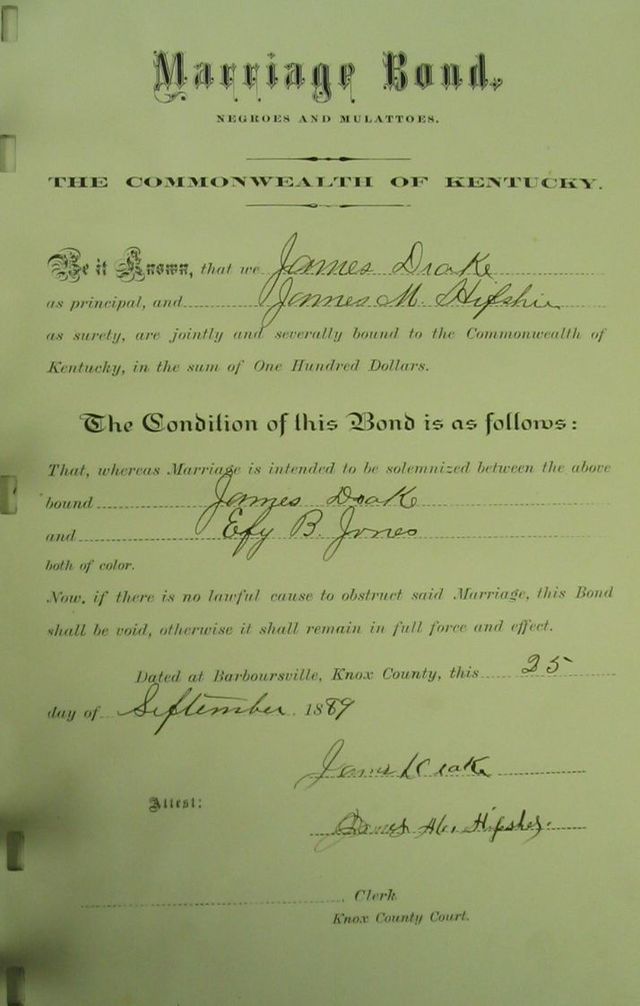 Marriage Bond.
NEGROES AND MULATTOES.
THE COMMONWEALTH OF KENTUCKY.
Be it Known, that we James Drake
as principal, and James M. Hifshir
as surety, are jointly and severally bound to the Commonwealth of
Kentucky, in the sum of One Hundred Dollars.
The Condition of this Bond is as follows:
That, whereas Marriage is intended to be solemnized between the above
bound James Drake
and Efy B. Jones
both of color.
Now, if there is no lawful cause to obstruct said Marriage, this Bond
shall be void, otherwise it shall remain in full force and effect.
Dated at Barboursville, Knox County, this 25
day of September 1889
James Drake
Attest:
James M. Hifsher
Clerk
Knox County Court.